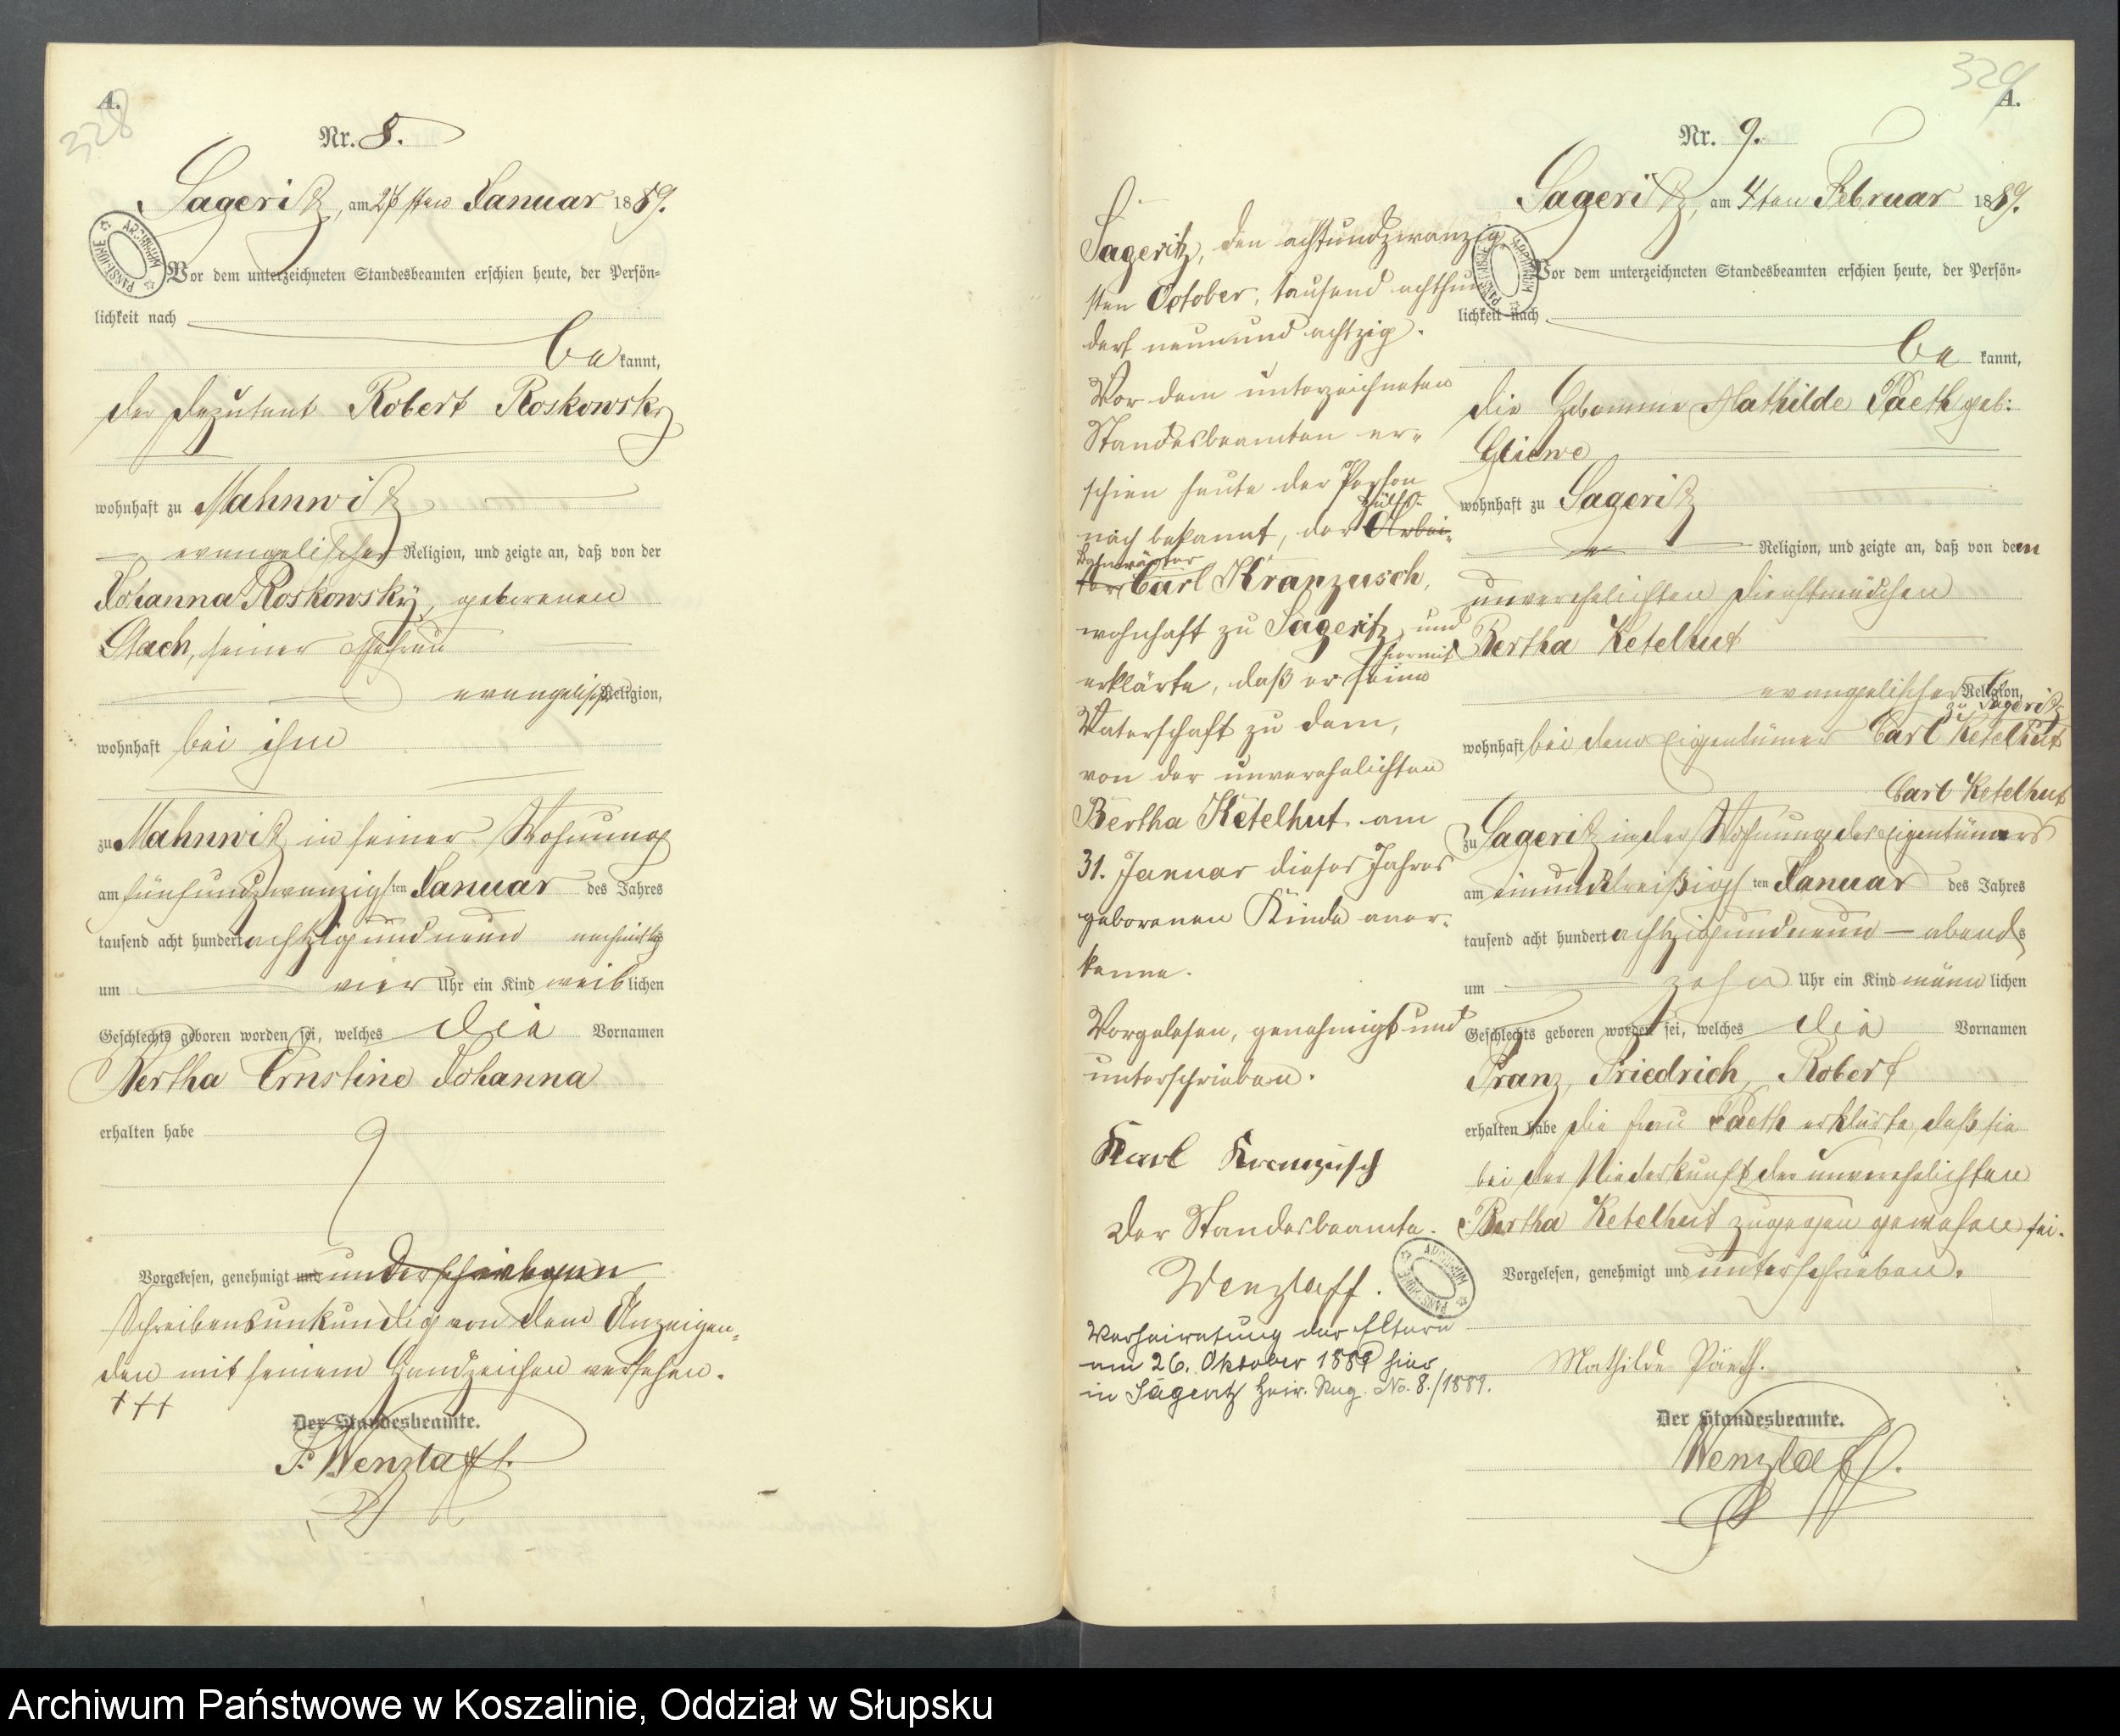 A.
328
Nr. 8.
Sageritz, am 26sten Januar 1889.
Vor dem unterzeichneten Standesbeamten erschien heute, der Persön-
lichkeit nach
be kannt,
der Deputant Robert Roskowsky
wohnhaft zu Mahnwitz
evangelischer Religion, und zeigte an, daß von der
Johanna Roskowsky, geborenen
Stach, seiner Ehefrau
evangelischer Religion,
wohnhaft bei ihm
zu Mahnwitz in seiner Wohnung
am fünfundzwanzigsten Januar des Jahres
tausend acht hundert achtzig und neun nachmittags
um vier Uhr ein Kind weiblichen
Geschlechts geboren worden sei, welches die Vornamen
Bertha Ernstine Johanna
erhalten habe
Vorgelesen, genehmigt und unterschrieben
Schreibensunkundig von dem Anzeigen-
den mit seinem Handzeichen versehen.
+++
Der Standesbeamte.
F. Wenzlaff.
329
A.
Nr. 9.
Sageritz, am 4ten Februar 1889.
Vor dem unterzeichneten Standesbeamten erschien heute, der Persön-
lichkeit nach
be kannt,
die Hebamme Mathilde Paeth geb:
Gliewe
wohnhaft zu Sageritz
Religion, und zeigte an, daß von dem
unverehelichten Dienstmädchen
Bertha Ketelhut
evangelischer Religion,
zu Sageritz
wohnhaft bei dem Eigentümer Carl Ketelhut
Carl Ketelhut
zu Sageritz in der Wohnung des Eigentümers
am einunddreißigsten Januar des Jahres
tausend acht hundert achtzig und neun — abends
um zehn Uhr ein Kind männlichen
Geschlechts geboren worden sei, welches die Vornamen
Franz, Friedrich, Robert
erhalten habe die Frau Paeth erklärte, daß sie
bei der Niederkunft der unverehelichten
Bertha Ketelhut zugegen gewesen sei.
Vorgelesen, genehmigt und unterschrieben.
Mathilde Päeth.
Der Standesbeamte.
Wenzlaff.
Sageritz, den achtundzwanzig
sten October, tausend achthun
dert neunundachtzig.
Vor dem unterzeichneten
Standesbeamten er-
schien heute der Person
Hülfs-
nach bekannt, der Arbei-
Bahnwärter
ter Carl Kranzusch,
wohnhaft zu Sageritz, und
hiermit
erklärte, daß er seine
Vaterschaft zu dem,
von der unverehelichten
Bertha Ketelhut am
31. Januar dieses Jahres
geborenen Kinde aner-
kenne.
Vorgelesen, genehmigt und
unterschrieben.
Karl Kranzusch
Der Standesbeamte.
Wenzlaff.
Verheiratung der Eltern
am 26. Oktober 1889 hier
in Sageritz Heir. Reg. No. 8./1889.
Archiwum Państwowe w Koszalinie, Oddział w Słupsku